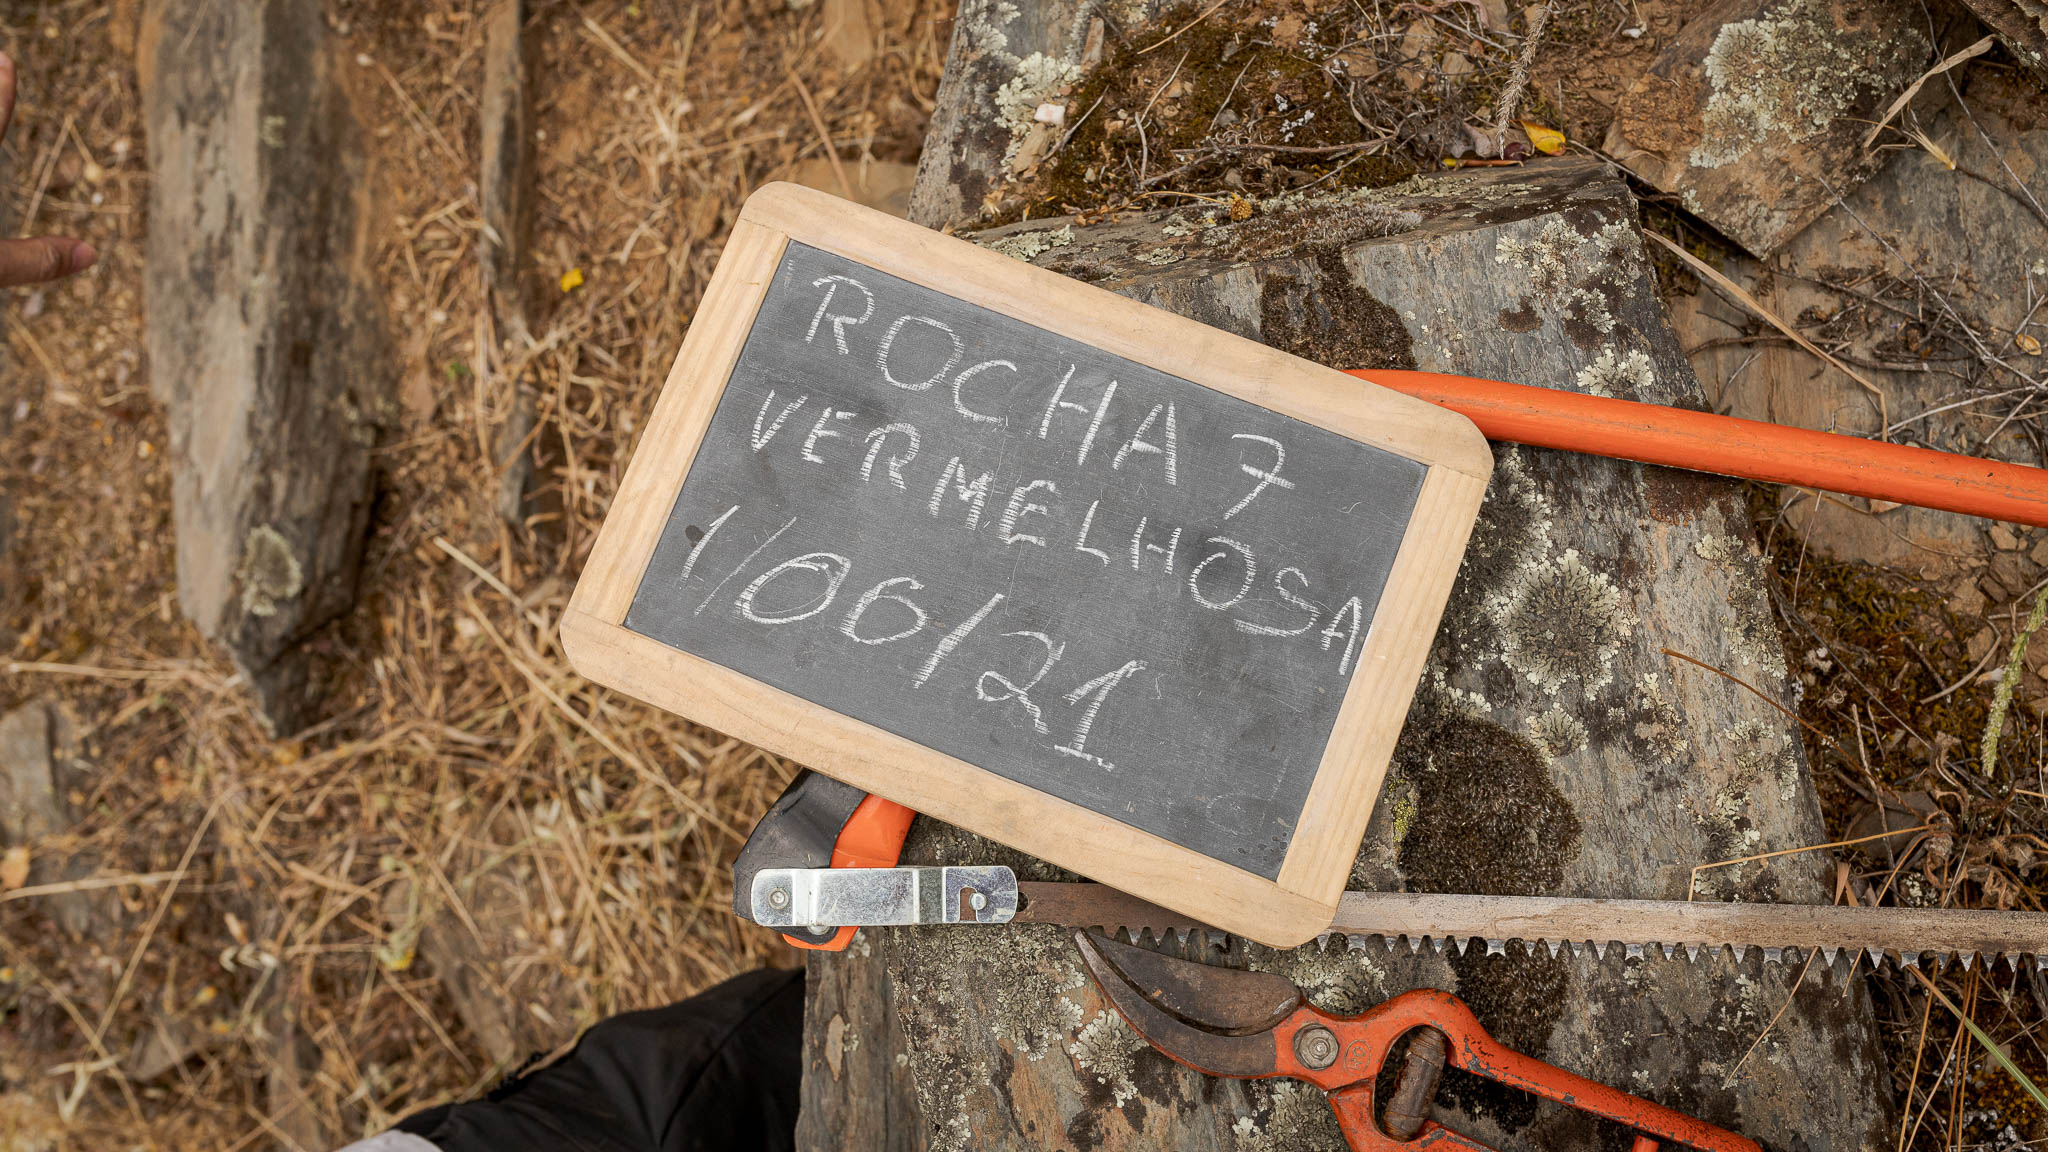 ROCHA 7
VERMELHOSA
1/06/21